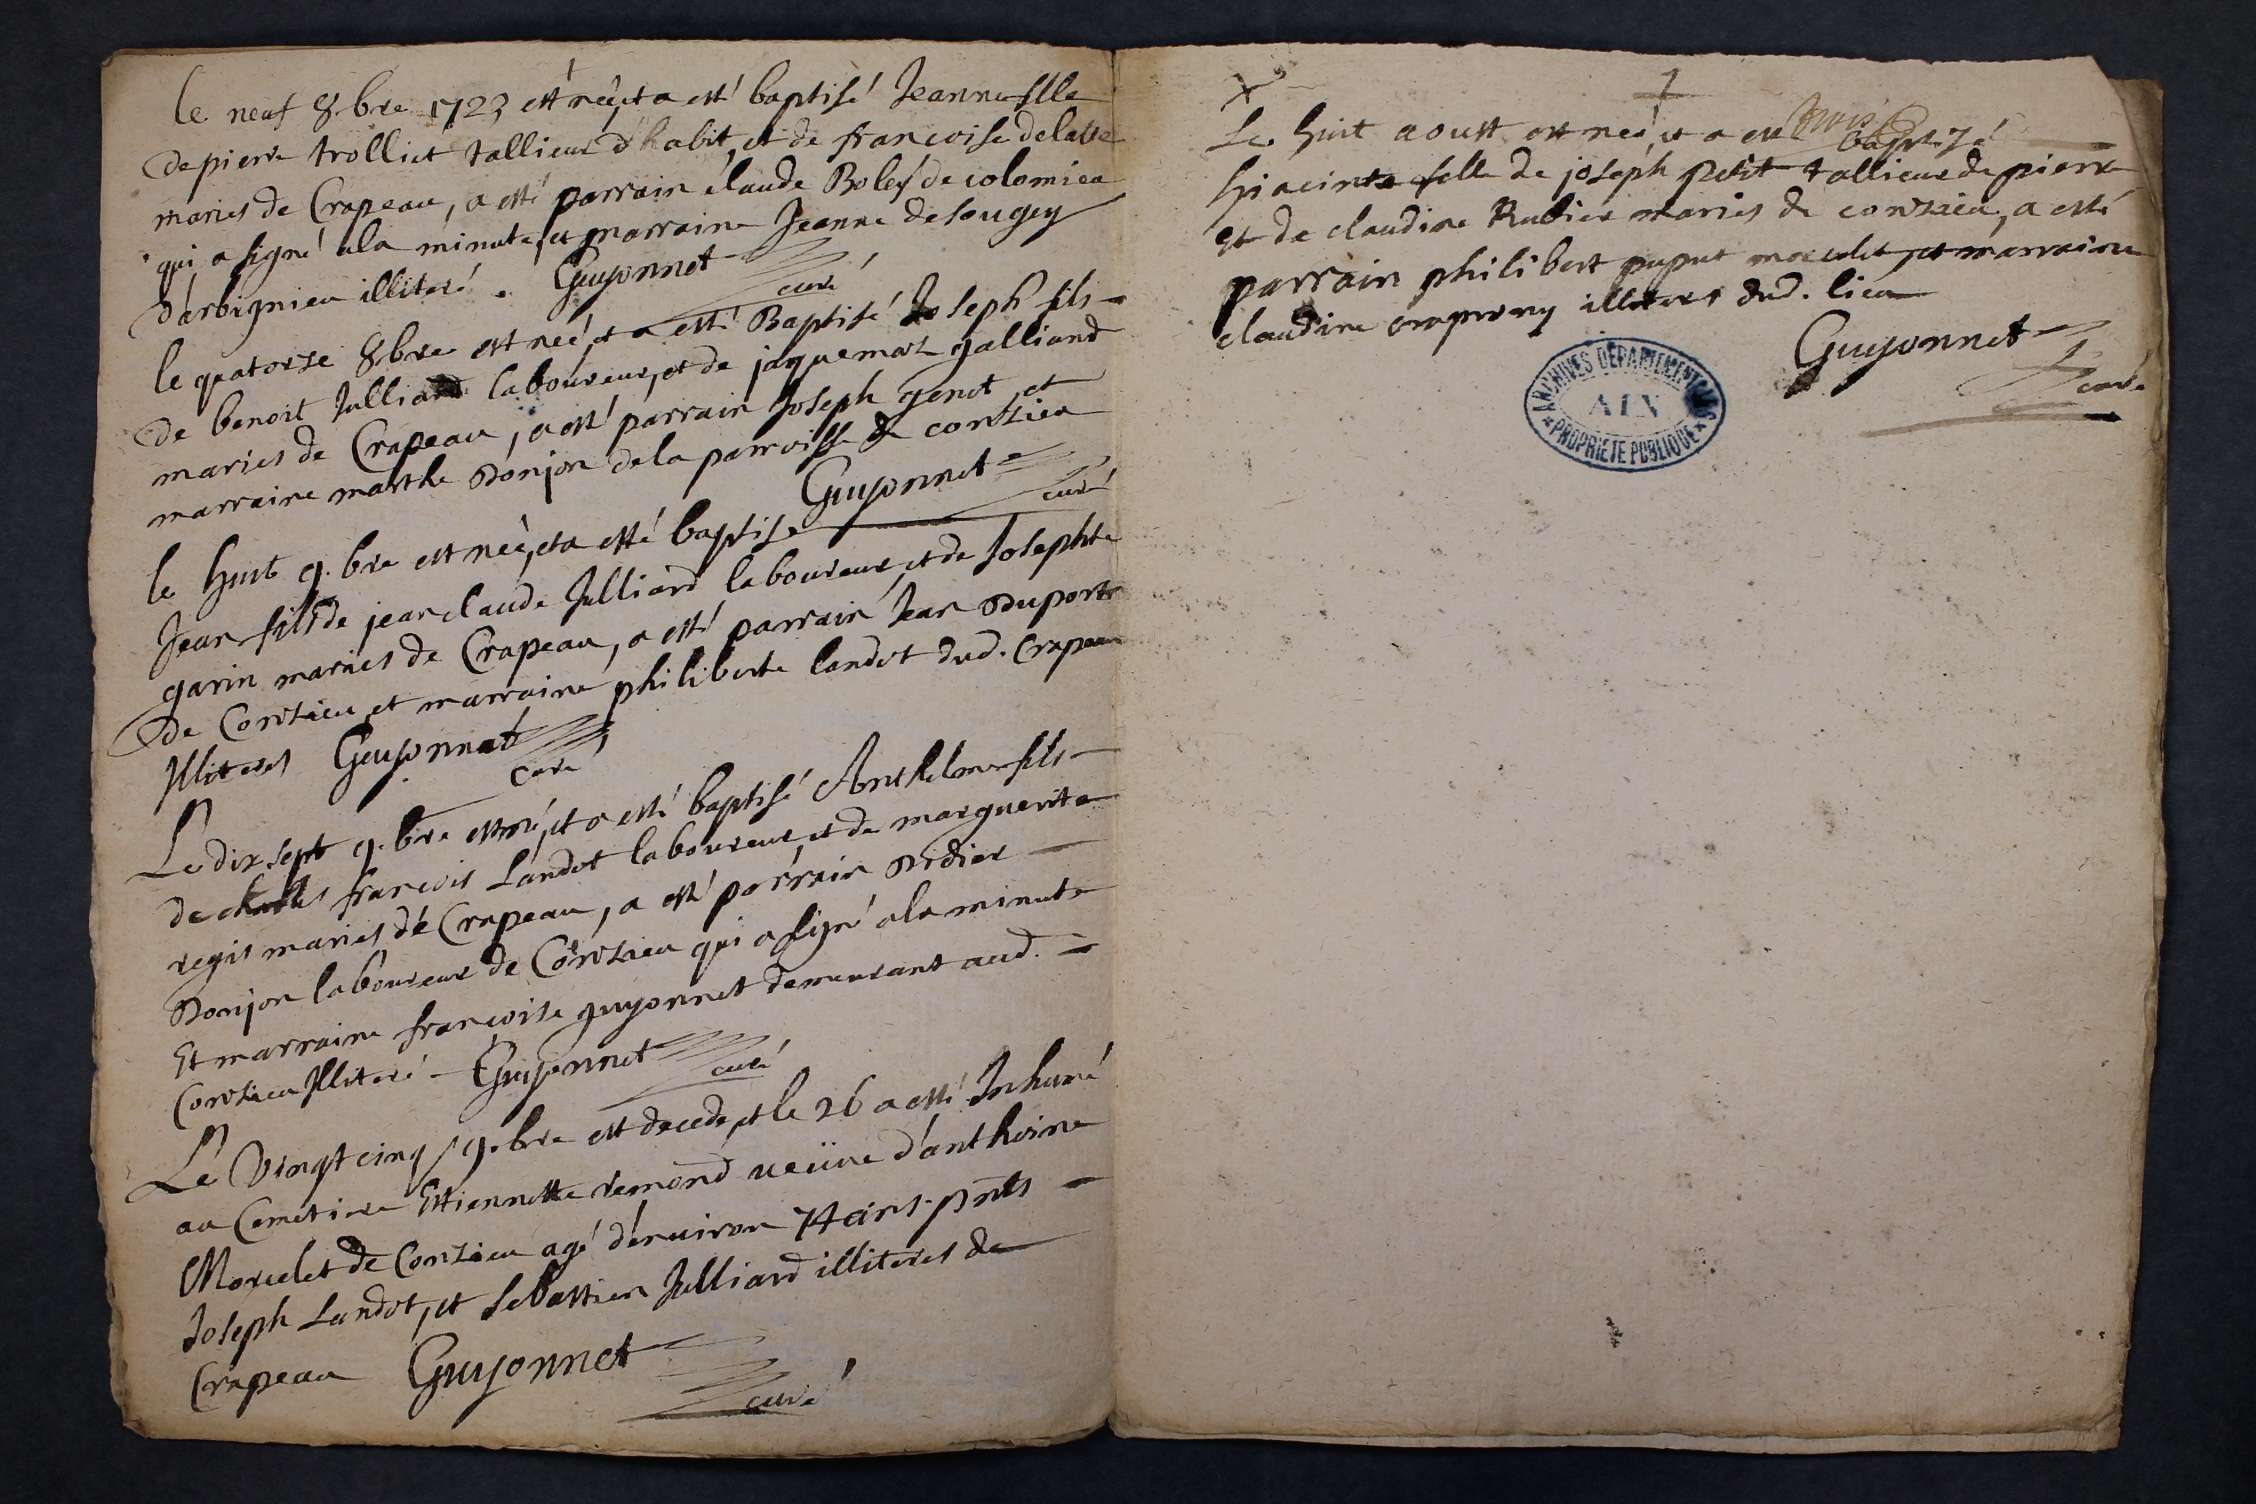 le neuf 8.bre 1723 est neé, et a esté baptisé Jeanne fille
de pierre trolliet tallieur d'habit, et de francoise delatte
mariés de Crapeau, a esté parrain claude Boley de colomieu
qui a signé a la minute, et marraine Jeanne de sougey
d'arbignieu illiteré. Guyonnet
curé
le quatorse 8bre est neé, et a esté Baptisé Joseph fils
de benoit Julliard laboureur, et de jaquemaz galliand
mariés de Crapeau, a esté parrain Joseph genot et
marraine marthe Donjon de la parroisse de contzieu
Guyonnet
curé
le huit 9.bre est neé, et a esté baptise
Jean fils de jean claude Julliard laboureur, et de Josephte
garin mariés de Crapeau, a esté parrain Jean Duport
de Contzieu, et marraine philiberte landot dud. Crapeau
Illiterés Guyonnet
curé
Le dix sept 9.bre est né, et a esté baptisé Anthelme fils
de charles francois Landot laboureur, et de marguerite
regis mariés de Crapeau, a esté parrain Didier
Donjon laboureur de Contzieu qui a signé a la minute
Et marraine francoise guyonnet demeurant aud.
Contzieu Illiteré Guyonnet
curé
Le vingt cinq 9.bre est decede, et le 26 a esté Inhumé
au Cemetiere Estiennette remond veüve d'anthoine
Morcelet de Contzieu agé d'environ 74 ans. pnts
Joseph Landot, et Sebastien Julliard illiterés de
Crapeau Guyonnet
curé
Le huit aoust est neé, et a esté baptizé
hiacinte fille de joseph petit tallieur de pierre
et de claudine Rubier mariés de contzieu, a esté
parrain philibert puput morcelet, et marraine
claudine illiterés dud. lieu
Guyonnet
curé
ARCHIVES DÉPARTEMENTALES
AIN
PROPRIÉTÉ PUBLIQUE